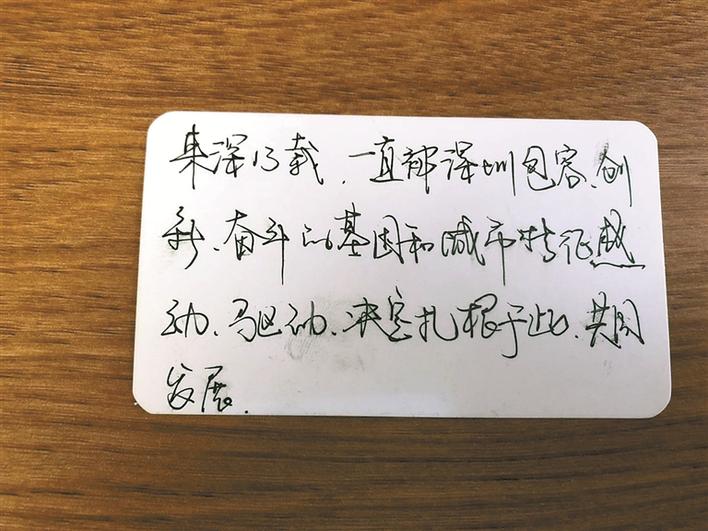 来深13载，一直被深圳包容、创
新、奋斗的基因和城市特征感
动、驱动、决定扎根于此、共同
发展.